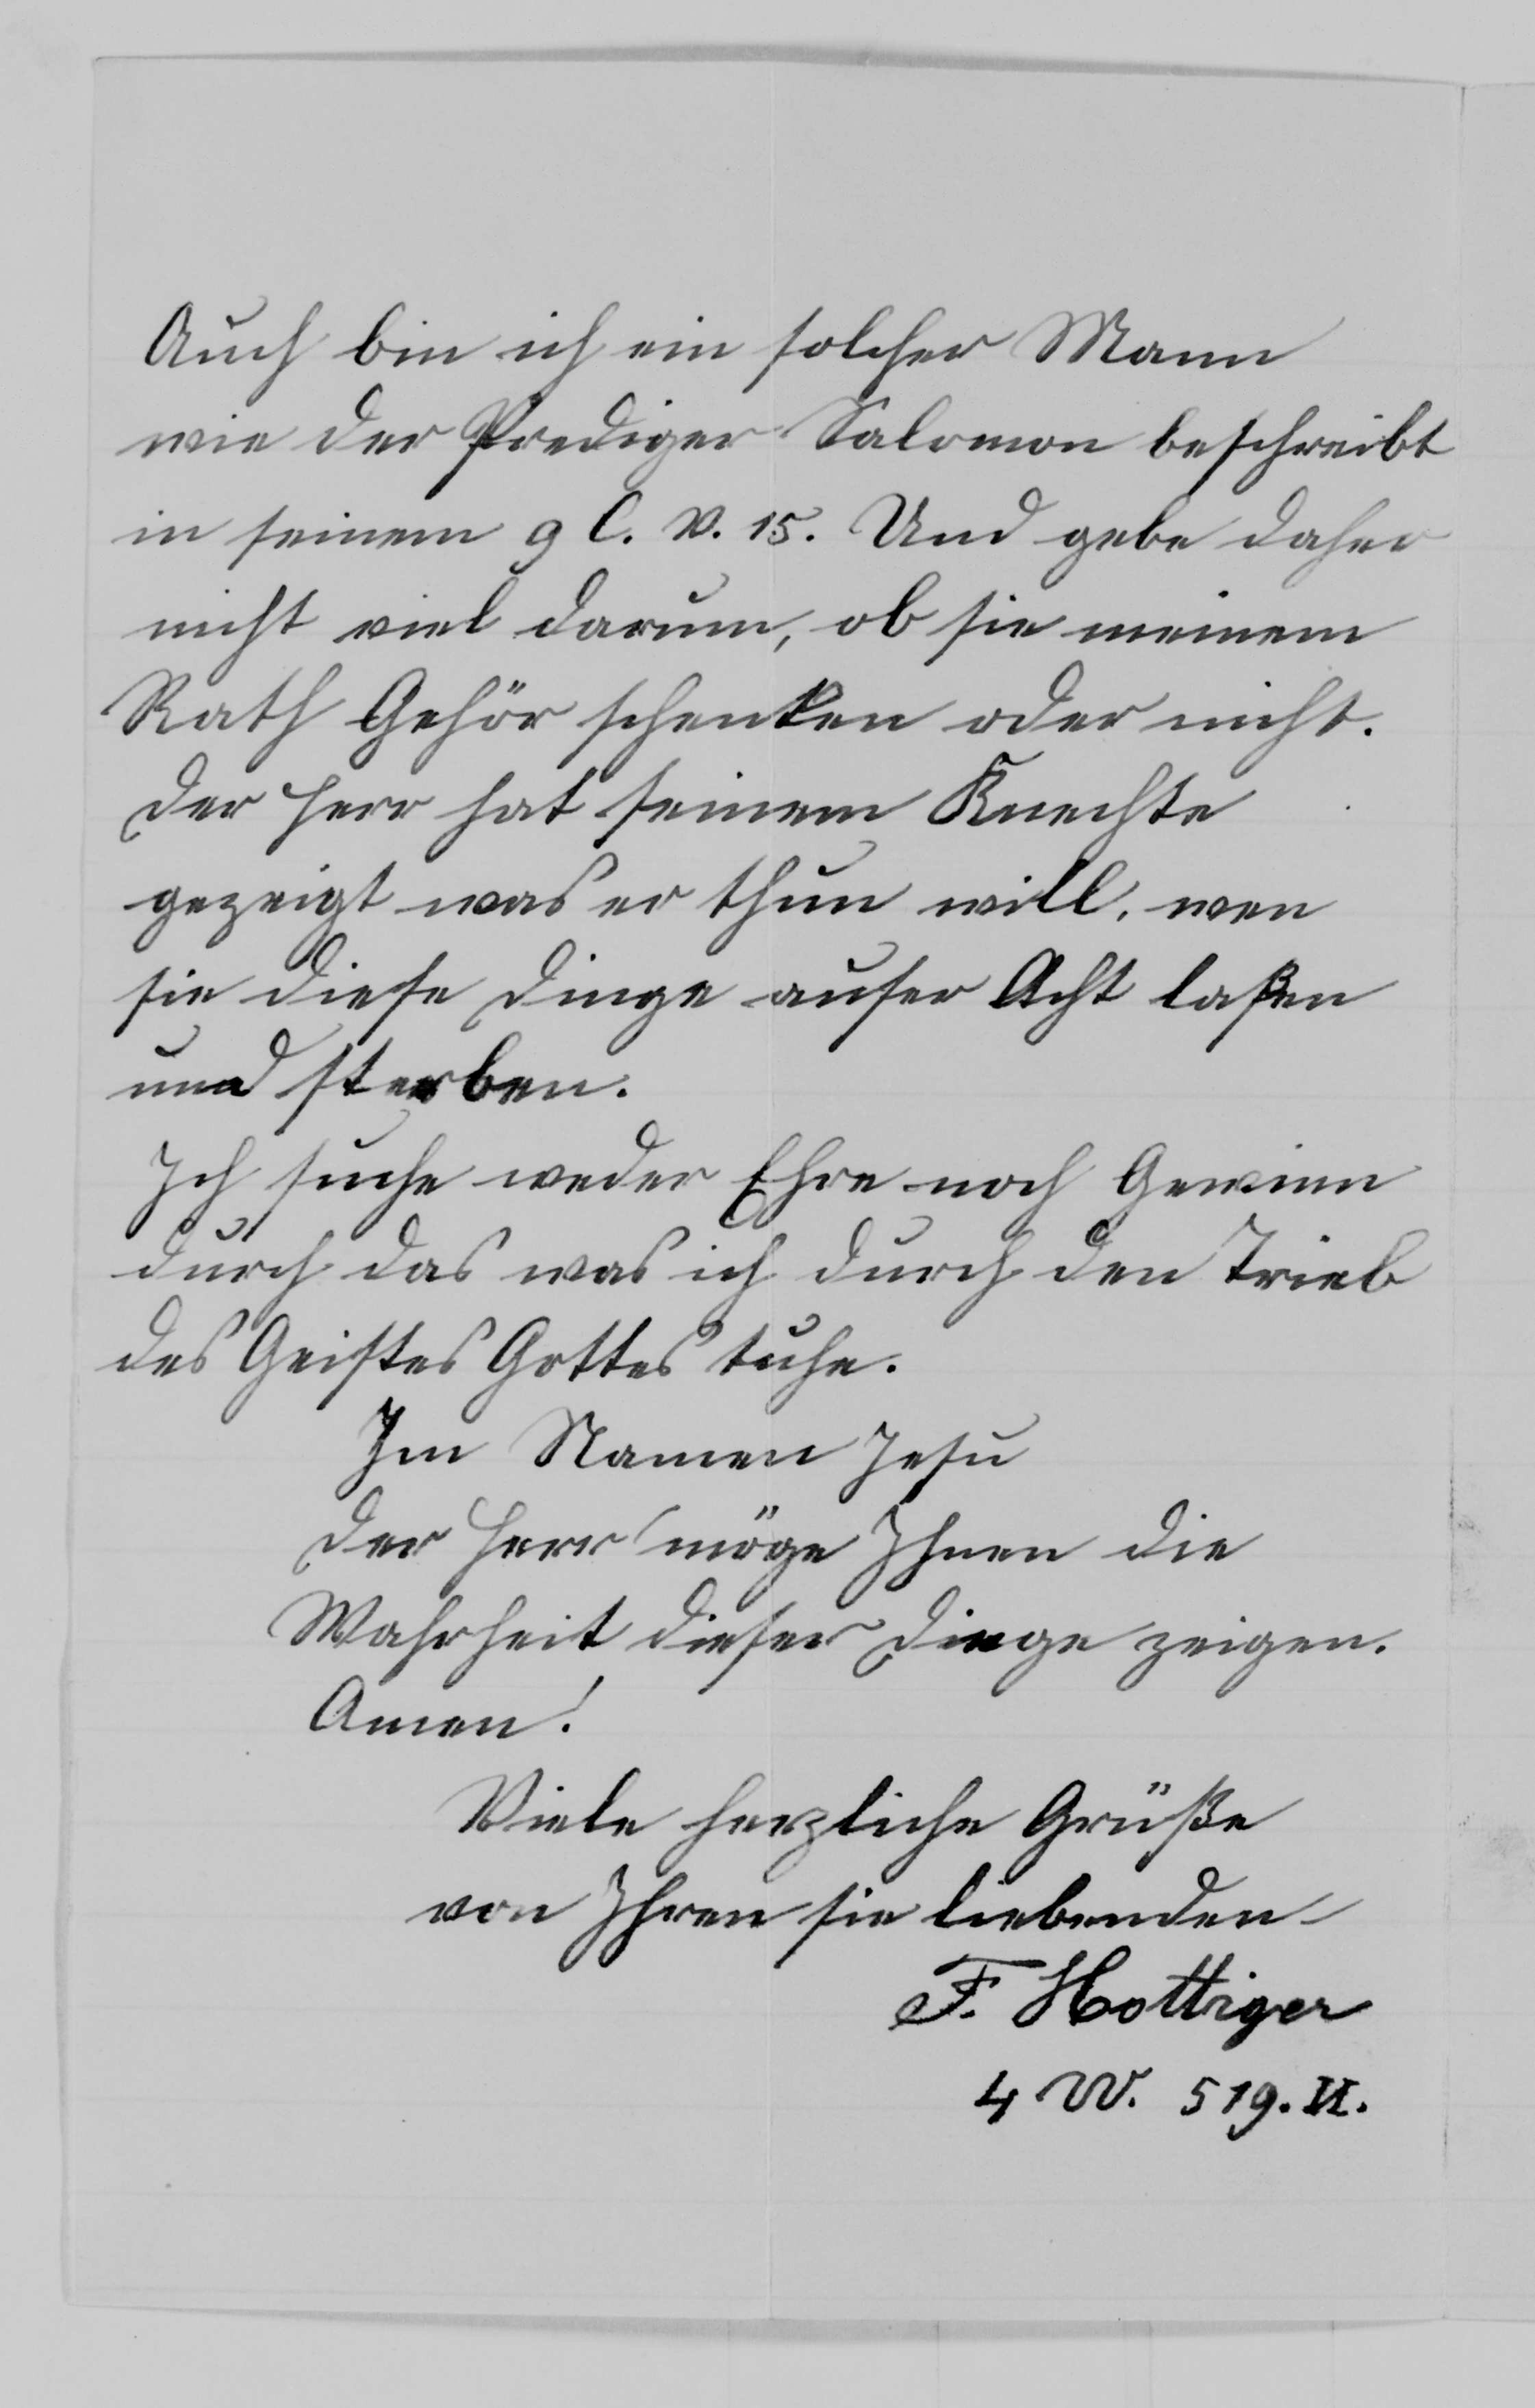 Auch bin ich ein solcher Mann
wie der Prediger Salomon beschreibt
in seinem 9 C. V. 15. Und gebe daher
nicht viel darum, ob sie meinem
Rath Gehör schenken oder nicht.
Der Herr hat seinem Knechte
gezeigt was er thun will, wen
sie diese Dinge auser Acht laßen
und sterben.
Ich suche weder Ehre noch Gewinn
durch das was ich durch den Trieb
des Geistes Gottes tuhe.
Im Namen Jesu
Der Herr möge Ihnen die
Wahrheit dieser Dinge zeigen.
Amen!
Viele herzliche Grüße
von Ihren sie liebenden
F. Hottiger
4 W. 519. II.